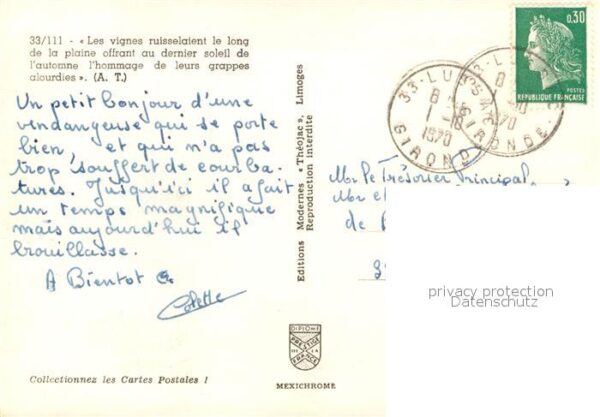 33/111 - « Les vignes ruisselaient le long
de la plaine offrant au dernier soleil de
l'automne l'hommage de leurs grappes
alourdies ». (A. T.)
Un petit bonjour d'une
vendangeuse qui se porte
bien, et qui n'a pas
trop souffert de courba-
tures. Jusqu'ici il a fait
un temps magnifique
mais aujourd'hui il
brouillasse.
A Bientot
Colette
Collectionnez les Cartes Postales !
Editions Modernes « Théojac », Limoges
Reproduction interdite
DIPLOME
PRESTIGE
DE LA
FRANCE
MEXICHROME
0,30
POSTES
REPUBLIQUE FRANÇAISE
33-LU
1-10
1970
GIRONDE
Mr le Trésorier Principal
Mr e
de
3
privacy protection
Datenschutz